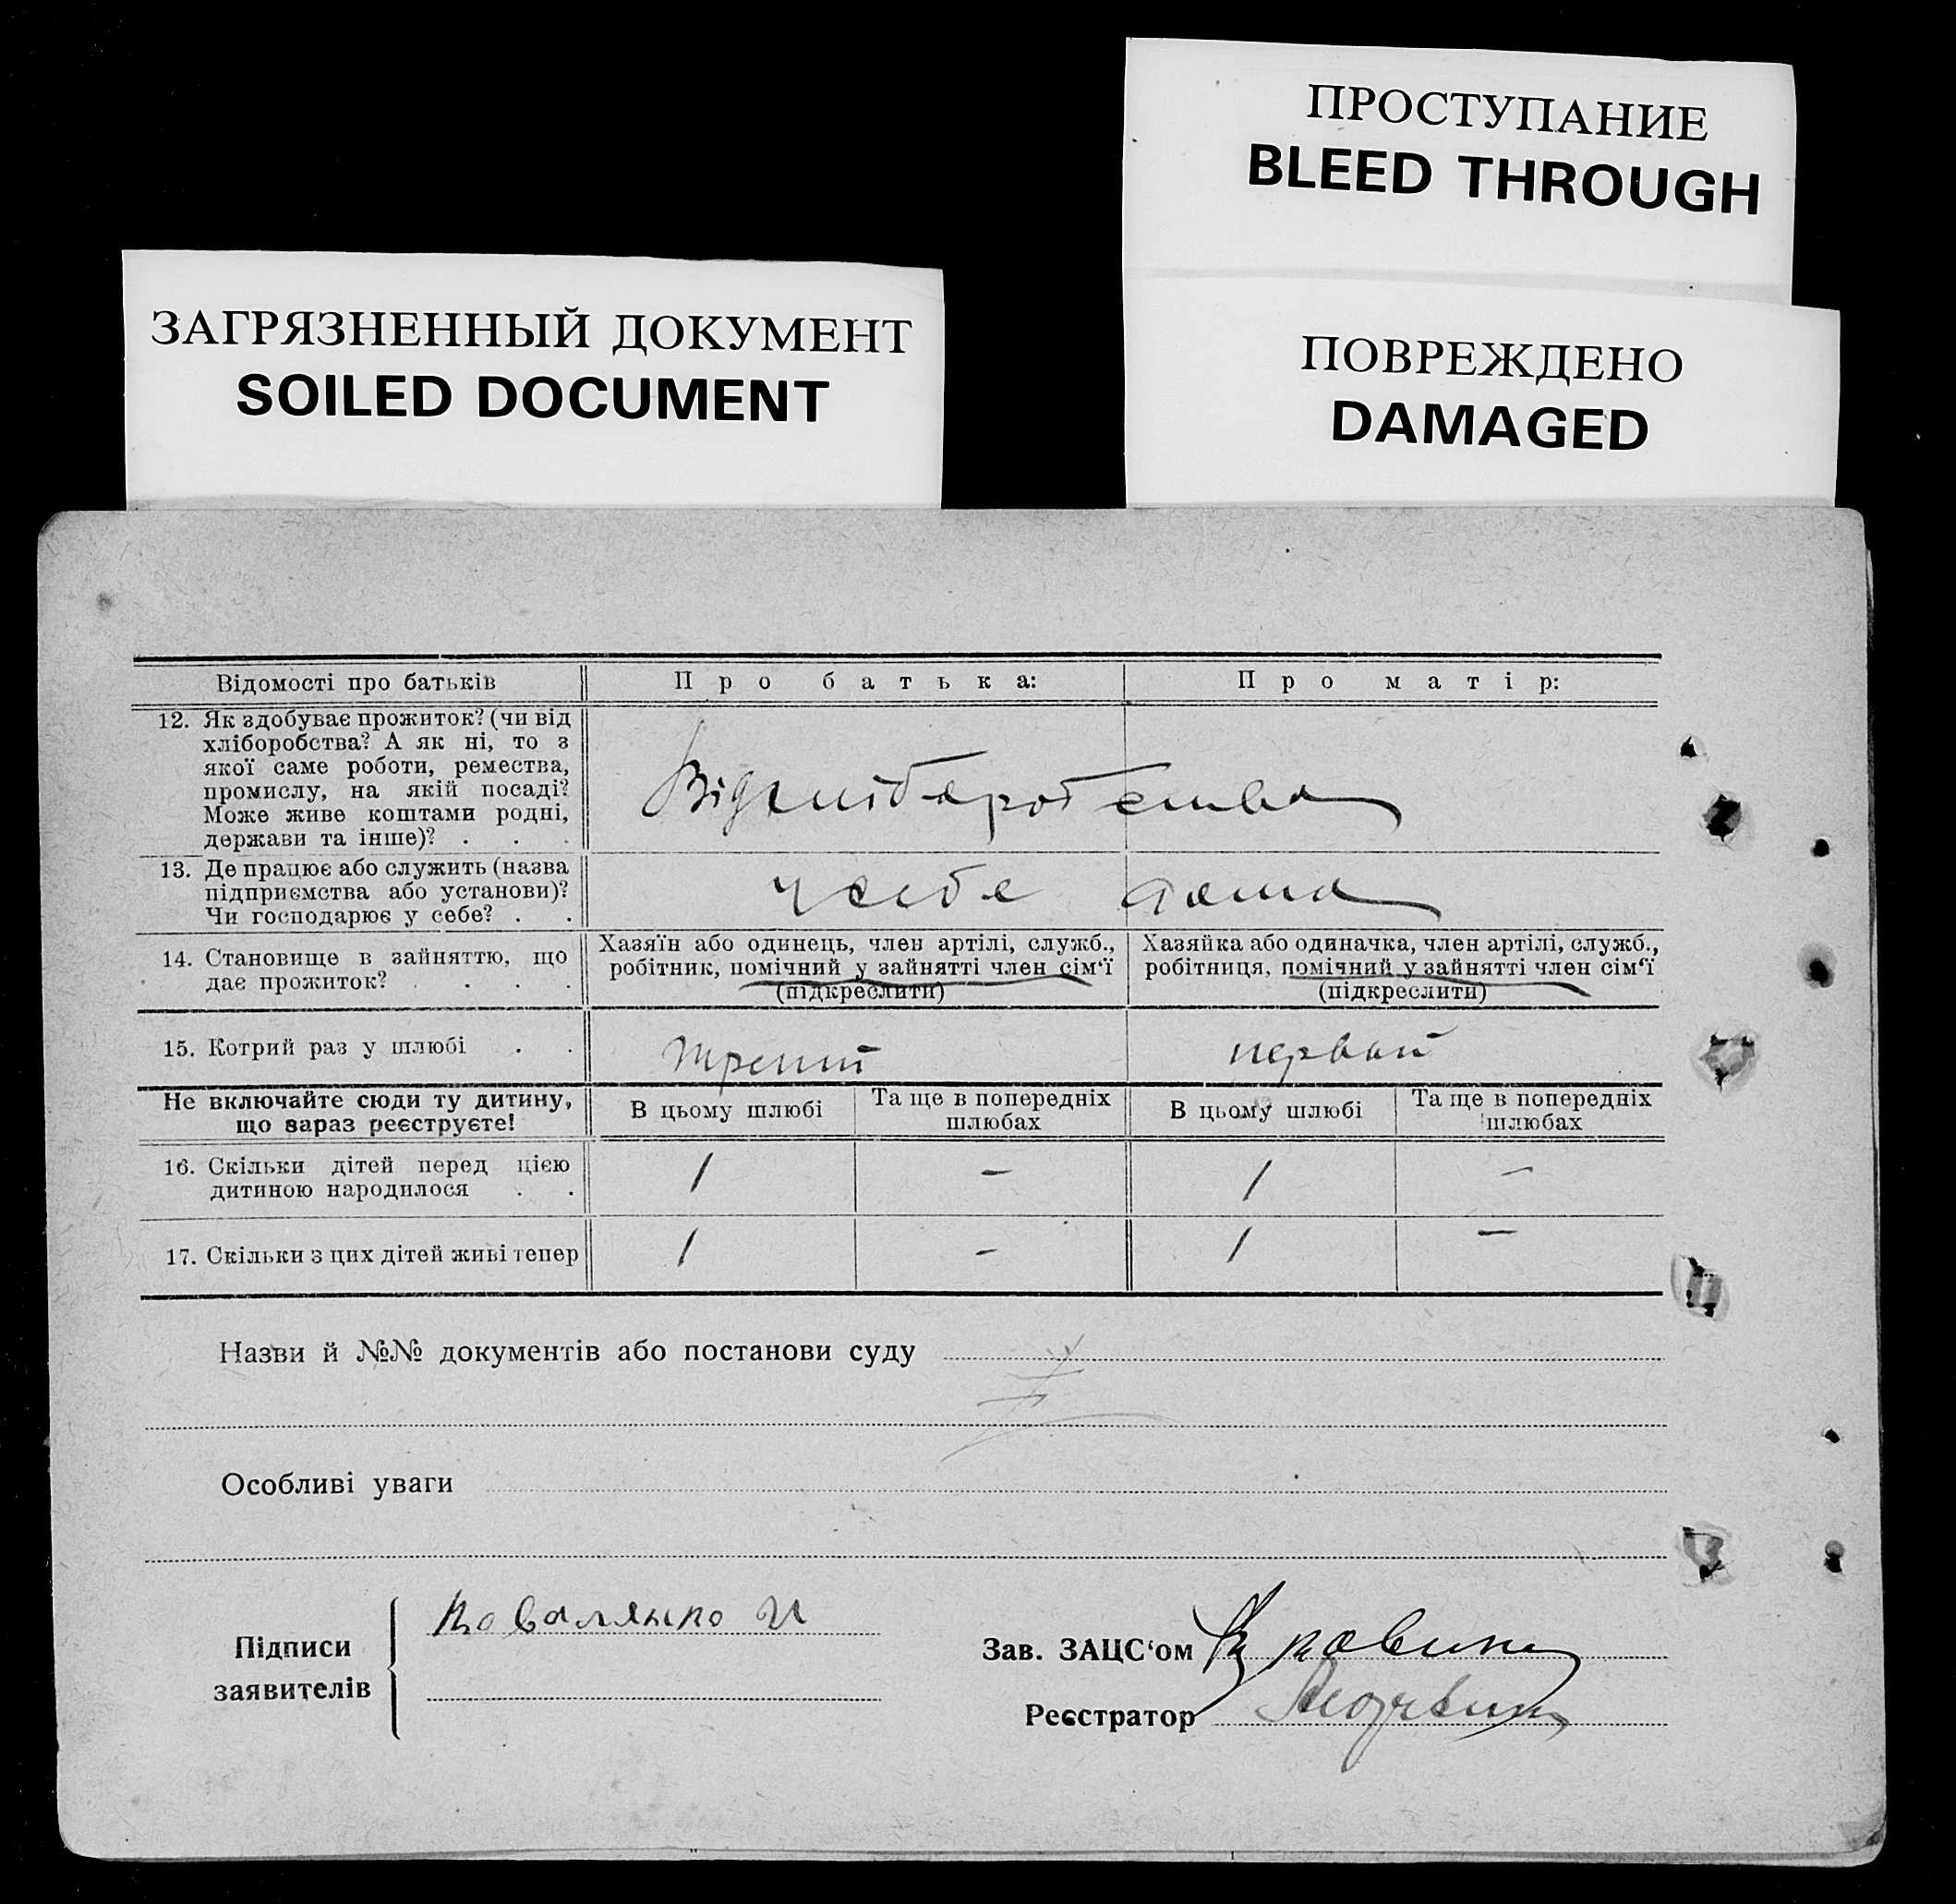 ПРОСТУПАНИЕ
BLEED THROUGH
ЗАГРЯЗНЕННЫЙ ДОКУМЕНТ
SOILED DOCUMENT
ПОВРЕЖДЕНО
DAMAGED
Відомості про батьків Про батька: Про матір:
12. Як здобуває прожиток? (чи від
хліборобства? А як ні, то з
якої саме роботи, ремества,
промислу, на якій посаді?
Може живе коштами родні,
держави та інше)? . . .
Від хліборобства
13. Де працює або служить (назва
підприємства або установи)?
Чи господарює у себе? . .
у себе дома
14. Становище в зайняттю, що
дає прожиток? . . . .
Хазяїн або одинець, член артілі, служб.,
робітник, помічний у зайнятті член сім‘ї
(підкреслити)
Хазяйка або одиначка, член артілі, служб.,
робітниця, помічний у зайнятті член сім‘ї
(підкреслити)
15. Котрий раз у шлюбі . . третий первый
Не включайте сюди ту дитину,
що зараз реєструєте!
В цьому шлюбі
Та ще в попередніх
шлюбах
В цьому шлюбі
Та ще в попередніх
шлюбах
16. Скільки дітей перед цією
дитиною народилося . .
1 – 1 –
17. Скільки з цих дітей живі тепер 1 – 1 –
Назви й №№ документів або постанови суду
Особливі уваги
Підписи
заявителів
Коваленко И
Зав. ЗАЦС‘ом
Реєстратор